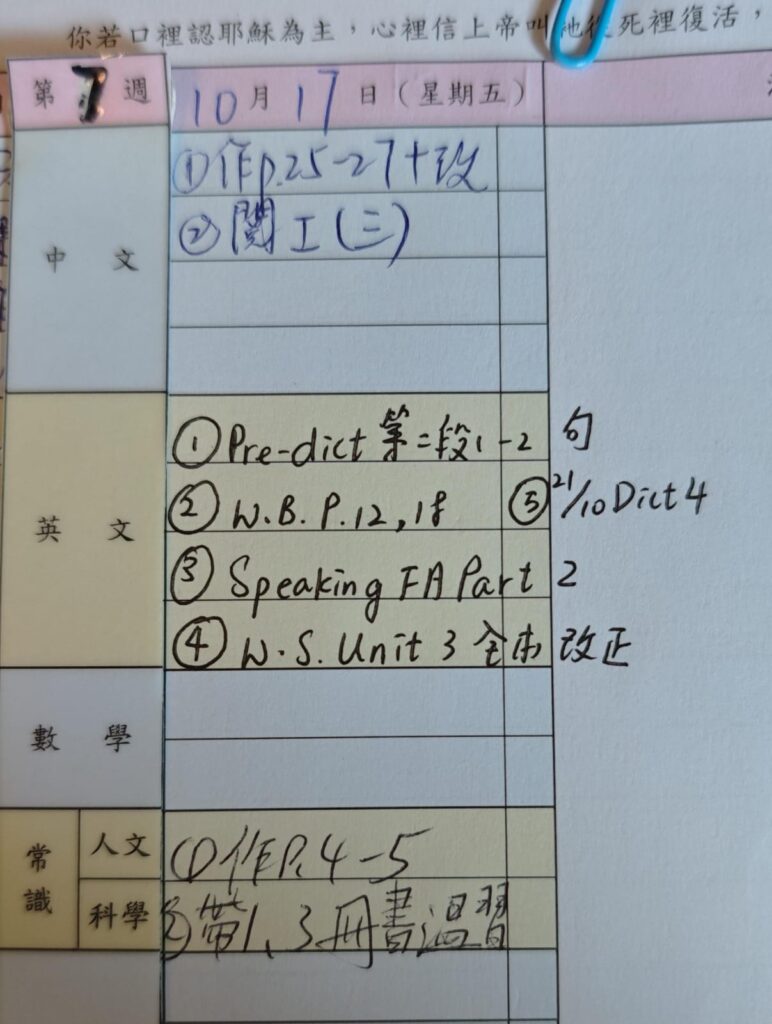 你若口裡認耶穌為主，心裡信上帝叫祂從死裡復活，
第 7 週
10 月 17 日（星期五）
中 文
①作p.25-27+改
②閱工(三)
英 文
① Pre-dict 第二段1-2 句
② W.B. P.12,18 ⑤ 21/10 Dict 4
③ Speaking FA Part 2
④ W.S. Unit 3 全本 改正
數 學
常識
人文
①作P.4-5
科學
②帶1、3冊書溫習